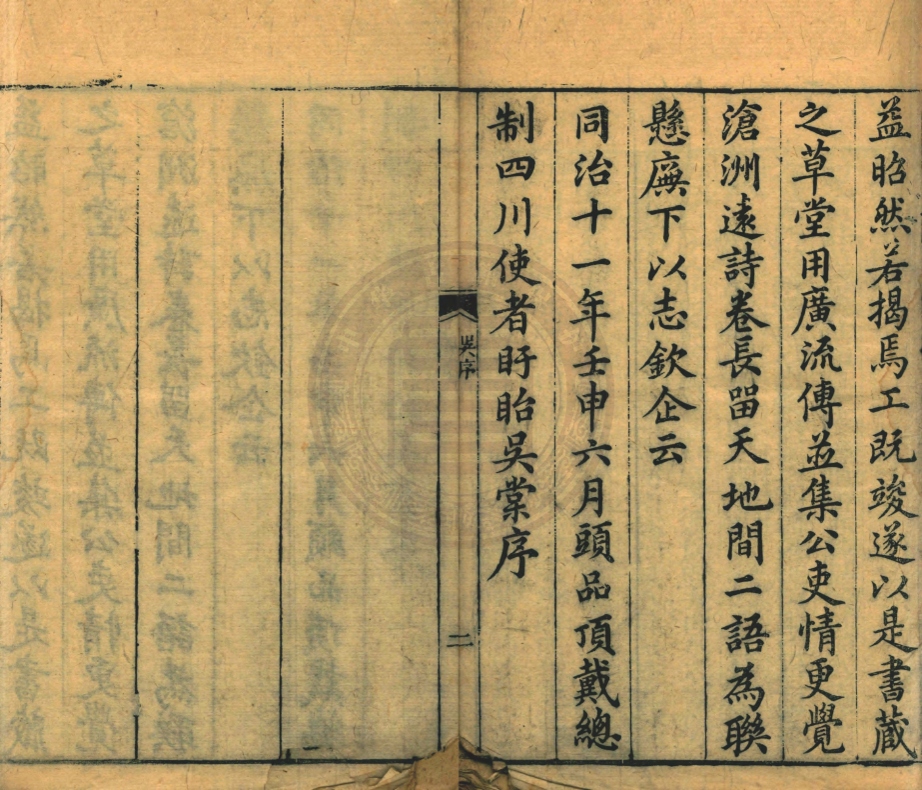 益昭然若揭焉工既竣遂以是書藏
之草堂用廣流傳並集公吏情更覺
滄洲遠詩卷長留天地間二語為聯
懸廡下以志欽企云
同治十一年壬申六月頭品頂戴總
制四川使者盱眙吳棠序
吳序
二